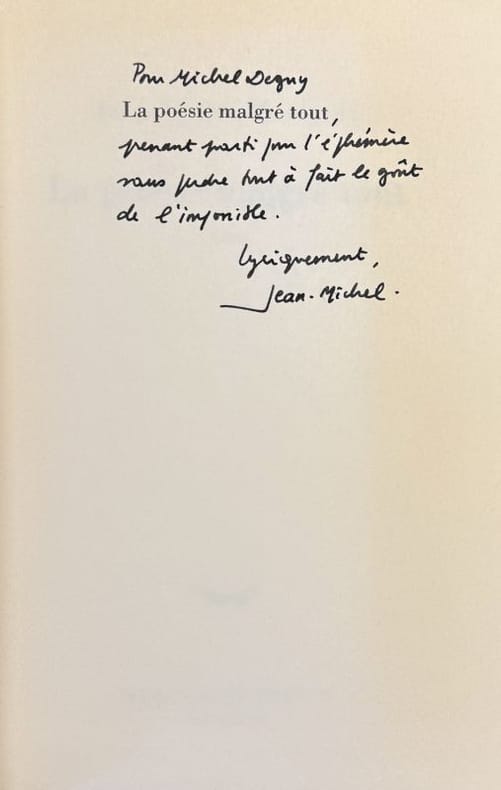 Pour Michel Deguy
La poésie malgré tout,
prenant parti pour l'éphémère
sans perdre tout à fait le goût
de l'impossible.
Lyriquement,
Jean-Michel.